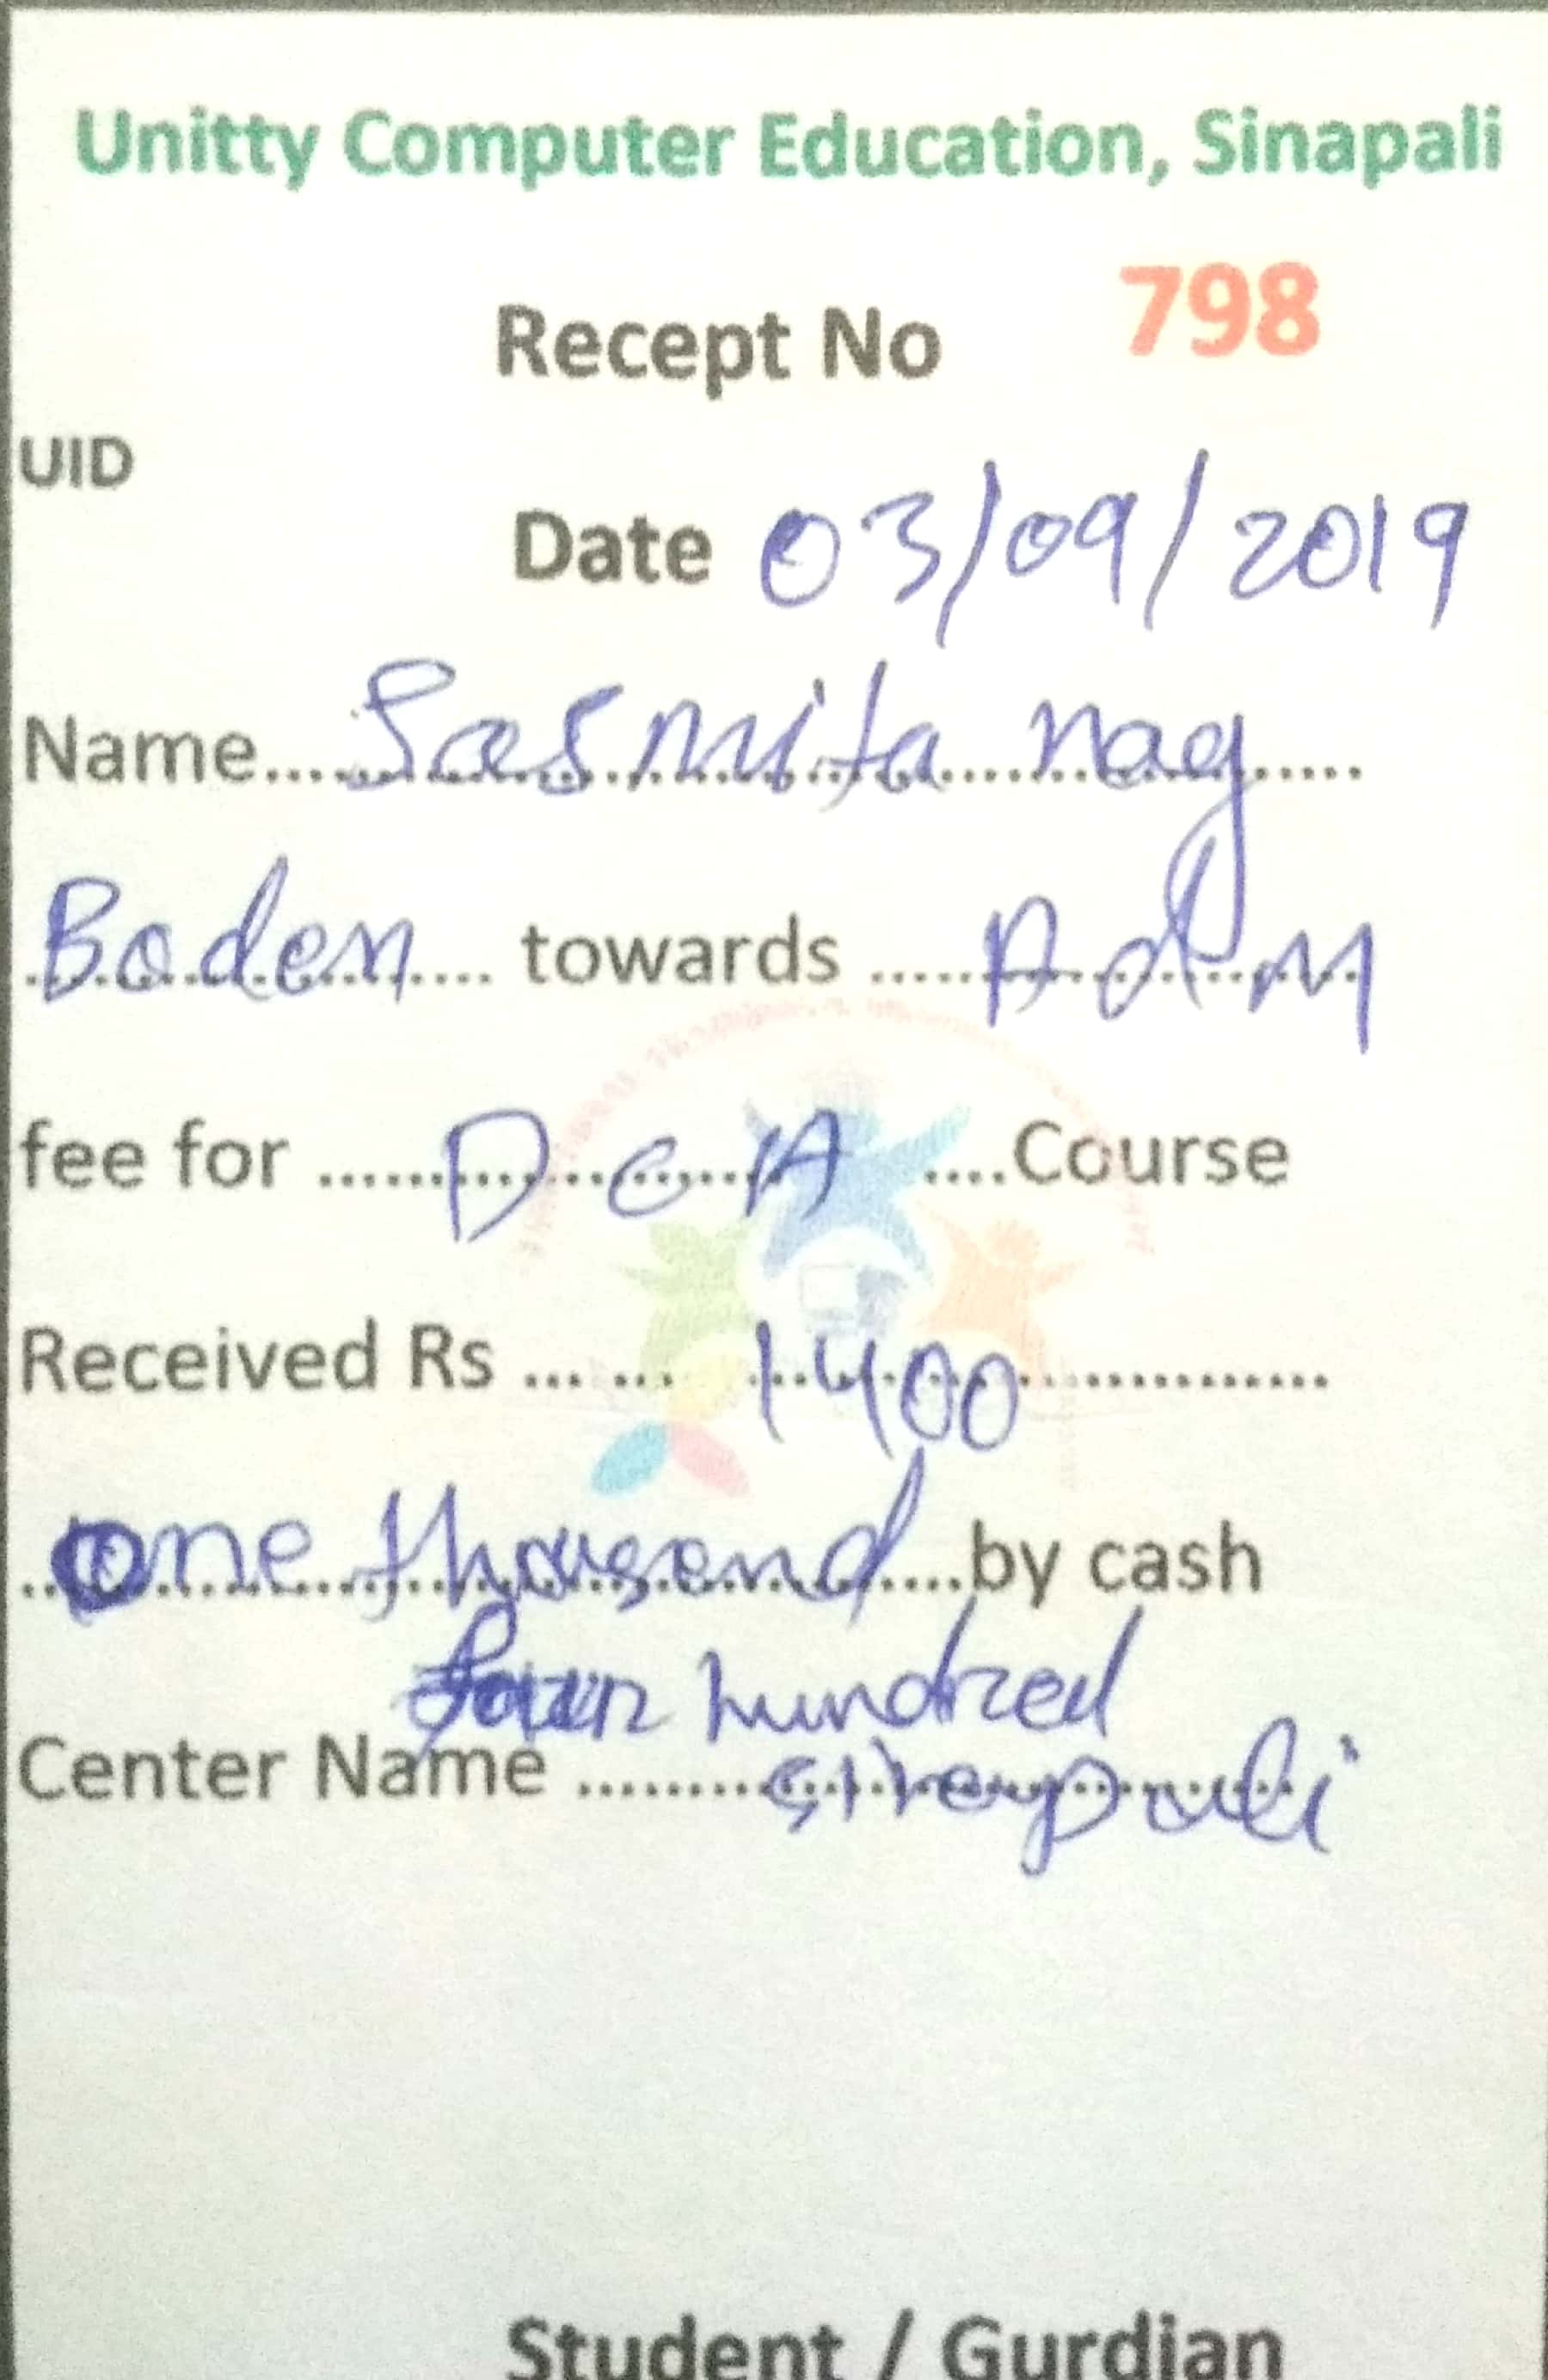 Unitty Computer Education, Sinapali
Recept No 798
UID
Date 03/09/2019
Name.... Sasmita nag .....
Boden .... towards ..... Adm
fee for ...... DCA ....Course
Received Rs ... ... 1400 .............
one thousand ....by cash
four hundred
Center Name .........
Student / Gurdian